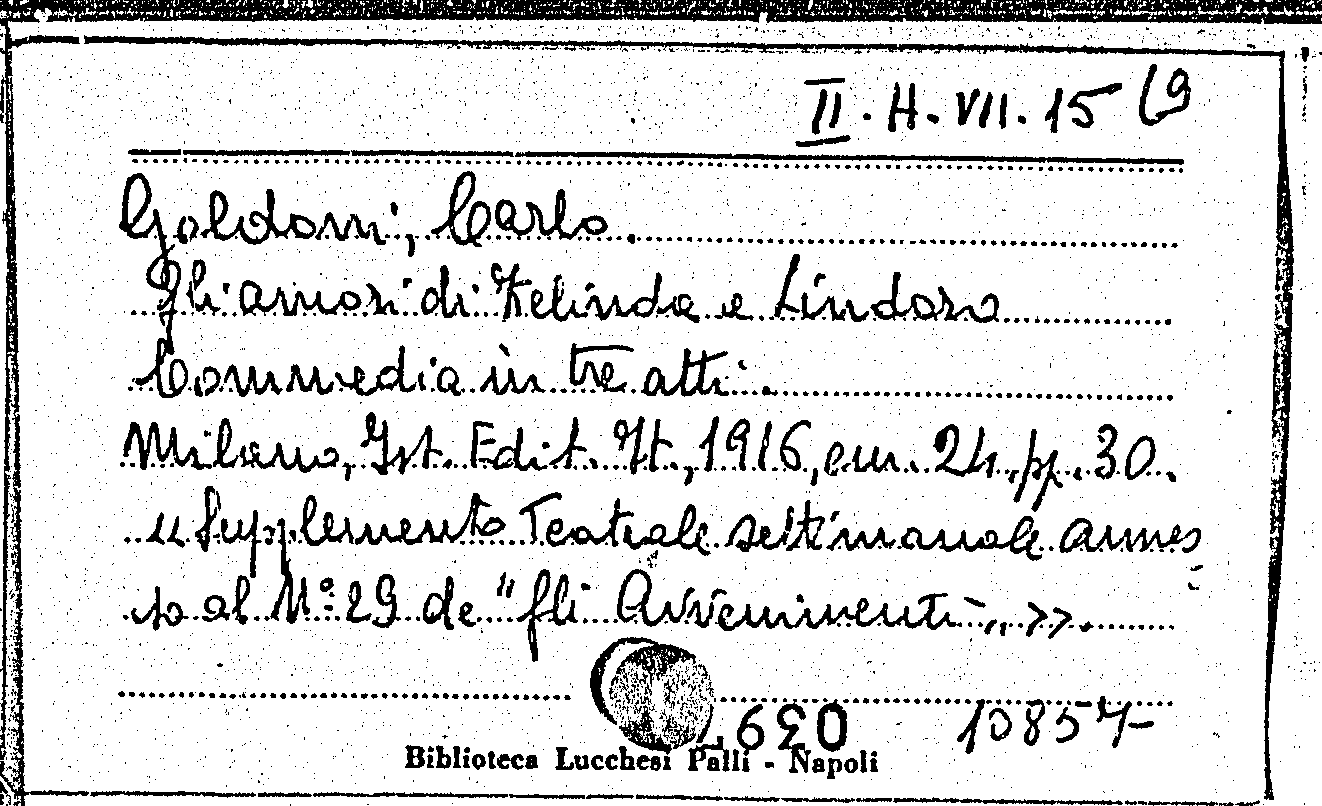 II. H. VII. 15 (9
Goldoni, Carlo.
Gli amori di Zelinda e Lindoro
Commedia in tre atti.
Milano, Ist. Edit. It., 1916, cm. 24. pp. 30.
« Supplemento Teatrale settimanale annes-
so al N.° 29 de "Gli Avvenimenti„ ».
10857
Biblioteca Lucchesi Palli - Napoli